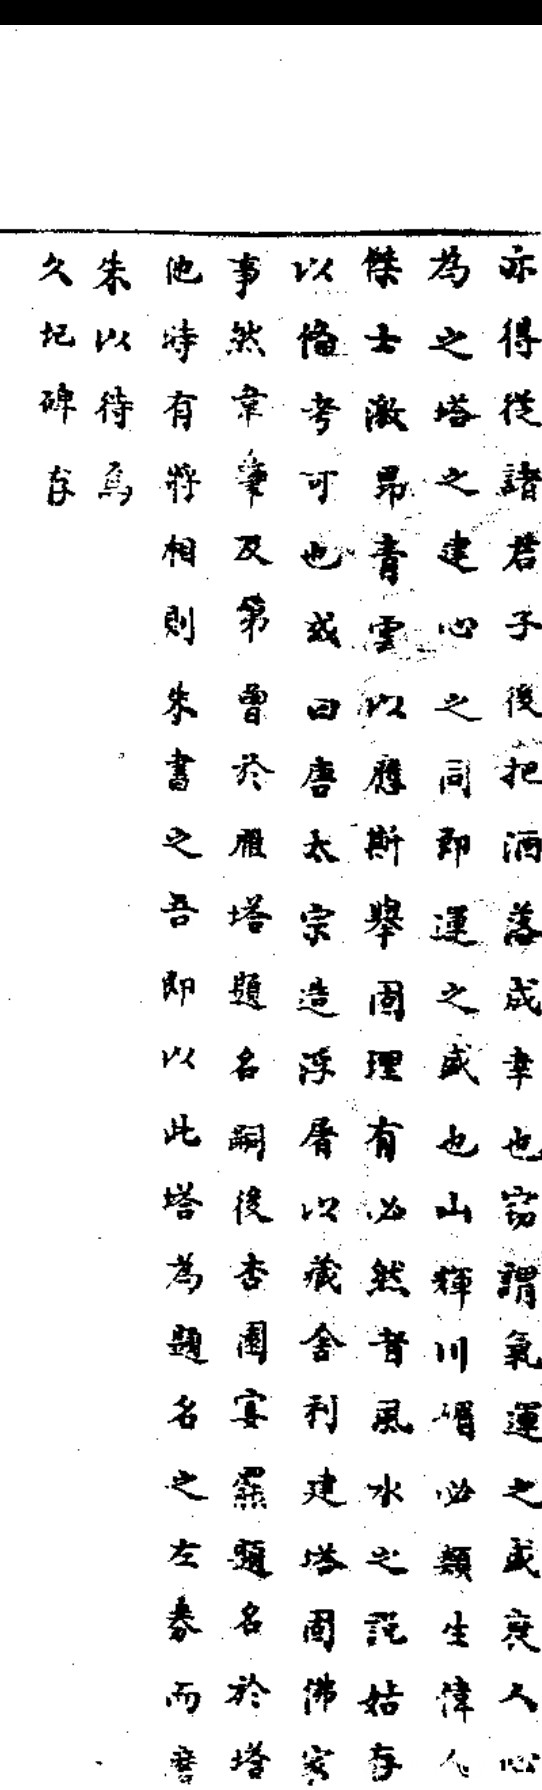 亦得從諸君子後把酒落成幸也竊謂氣運之盛衰人心
為之塔之建心之同即運之盛也山輝川媚必類生偉人
傑士激昂青雲以應斯舉固理有必然者風水之說姑存
以偹考可也或曰唐太宗造浮屠以藏舍利建塔固佛家
事然韋肇及第曾於雁塔題名嗣後杏園宴罷題名於塔
他時有將相則朱書之吾即以此塔為題名之左券而磨
朱以待焉
久圮碑存